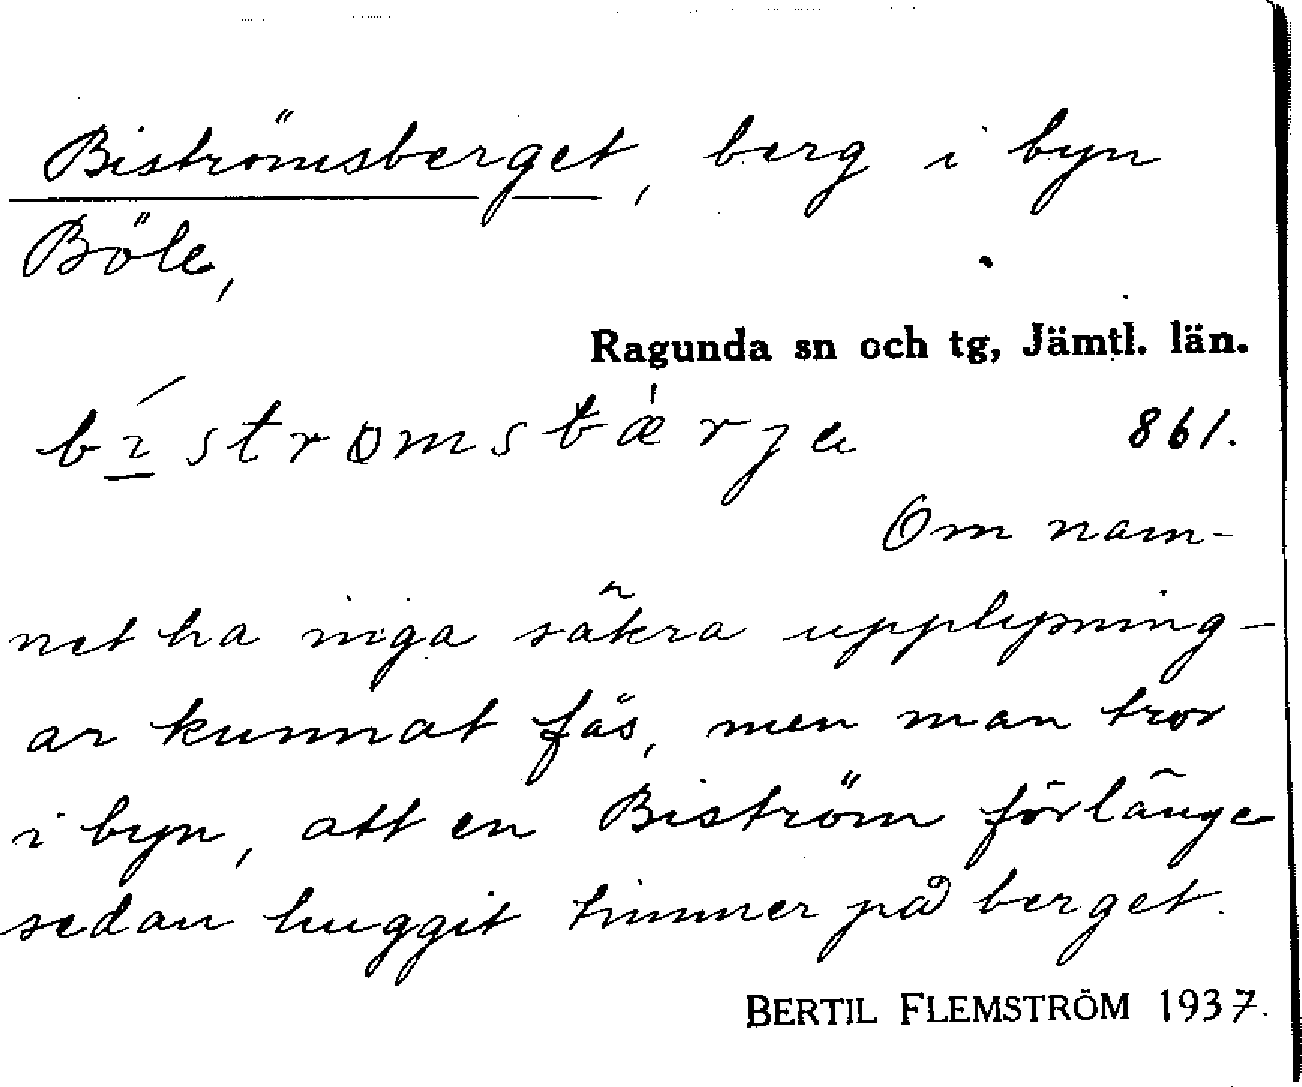 Biströmsberget, berg i byn
Böle,
Ragunda sn och tg, Jämtl. län.
bı́stromsbærje 861.
Om nam-
net ha inga säkra upplysning-
ar kunnat fås, men man tror
i byn, att en Biström för länge
sedan huggit timmer på berget.
BERTIL FLEMSTRÖM 1937.